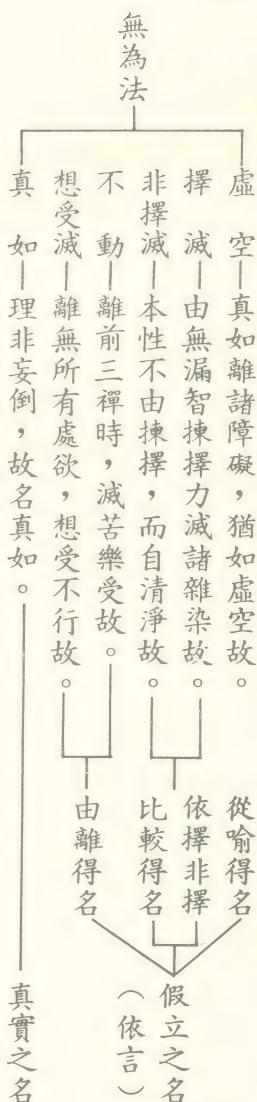 無為法
虛空—真如離諸障礙，猶如虛空故。
擇滅—由無漏智揀擇力滅諸雜染故。
非擇滅—本性不由揀擇，而自清淨故。
不動—離前三禪時，滅苦樂受故。
想受滅—離無所有處欲，想受不行故。
真如—理非妄倒，故名真如。
從喻得名
依擇非擇
比較得名
由離得名
假立之名
（依言）
真實之名